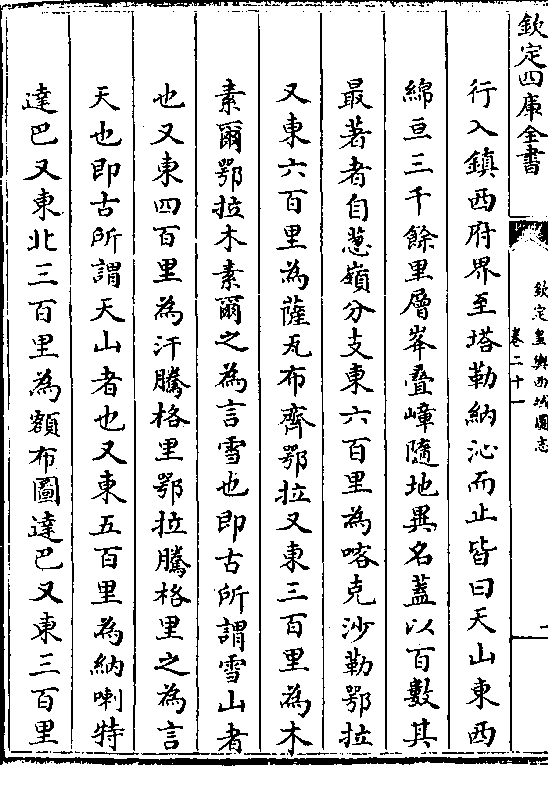 欽定四庫全書
欽定皇輿西域圖志
卷二十一
一
行入鎮西府界至塔勒納沁而止皆曰天山東西
綿亘三千餘里層峯疊嶂隨地異名蓋以百數其
最著者自葱嶺分支東六百里為喀克沙勒鄂拉
又東六百里為薩瓦布齊鄂拉又東三百里為木
素爾鄂拉木素爾之為言雪也即古所謂雪山者
也又東四百里為汗騰格里鄂拉騰格里之為言
天也即古所謂天山者也又東五百里為納喇特
達巴又東北三百里為額布圖達巴又東三百里